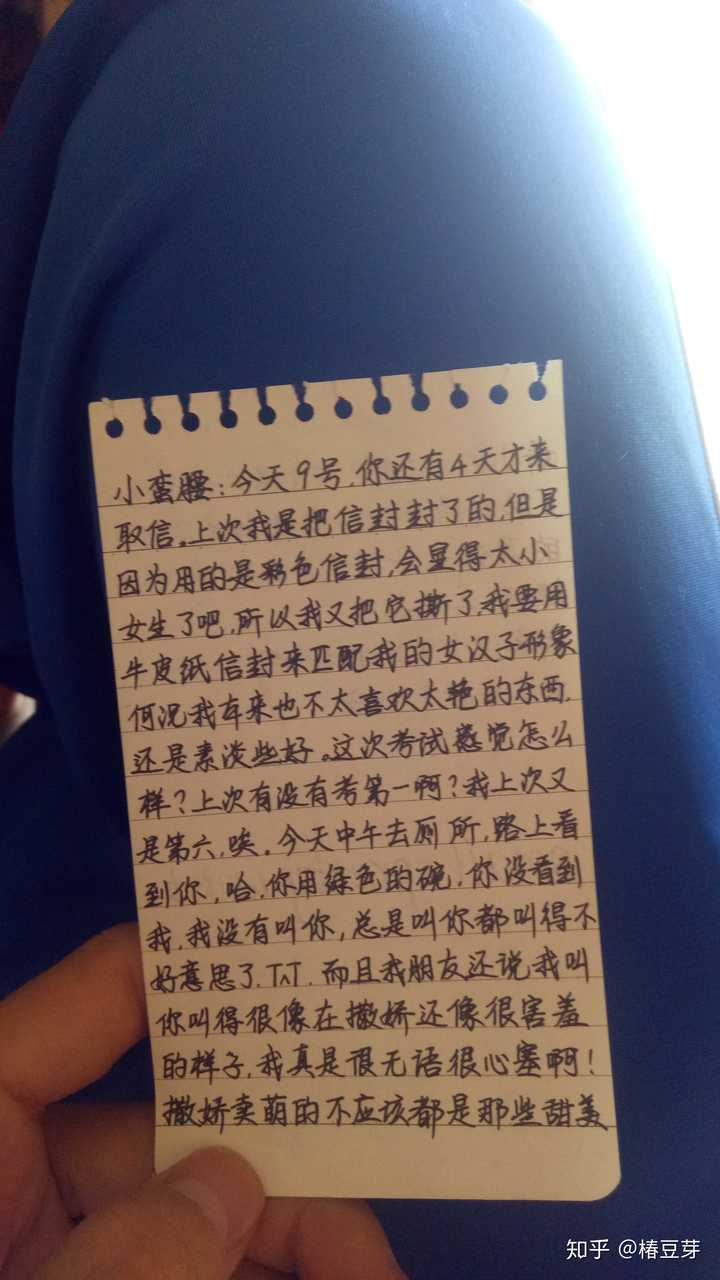 小蛮腰:今天9号,你还有4天才来
取信。上次我是把信封封了的,但是
因为用的是彩色信封,会显得太小
女生了吧,所以我又把它撕了,我要用
牛皮纸信封来匹配我的女汉子形象
何况我本来也不太喜欢太艳的东西,
还是素淡些好。这次考试感觉怎么
样?上次有没有考第一啊?我上次又
是第六,唉。今天中午去厕所,路上看
到你,哈,你用绿色的碗,你没看到
我,我没有叫你,总是叫你都叫得不
好意思了,T^T,而且我朋友还说我叫
你叫得很像在撒娇还像很害羞
的样子,我真是很无语很心塞啊!
撒娇卖萌的不应该都是那些甜美
知乎 @椿豆芽